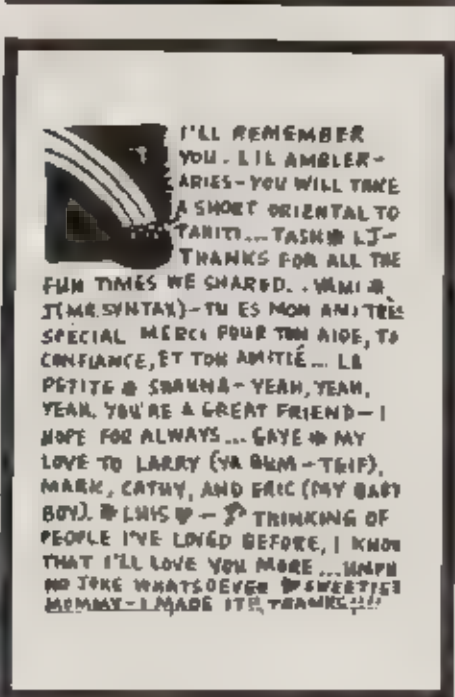 I'LL REMEMBER
YOU. LIL AMBLER-
ARIES-YOU WILL TAKE
A SHORT ORIENTAL TO
TAHITI... TASH* LJ-
THANKS FOR ALL THE
FUN TIMES WE SHARED.. *
J(MR.SYNTAX)-TU ES MON AMI TRÈS
SPECIAL MERCI POUR TON AIDE, TA
CONFIANCE, ET TON AMITIÉ... LA
PETITE * SHAUNA-YEAH, YEAH,
YEAH, YOU'RE A GREAT FRIEND-I
HOPE FOR ALWAYS... GAYE * MY
LOVE TO LARRY (YA BUM-TRIF),
MARK, CATHY, AND ERIC (MY BABY
BOY). * LUIS ♥ - THINKING OF
PEOPLE I'VE LOVED BEFORE, I KNOW
THAT I'LL LOVE YOU MORE ...HMPH
NO JOKE WHATSOEVER ♥ SWEETIE*
MOMMY-I MADE IT!! THANKS!!!!